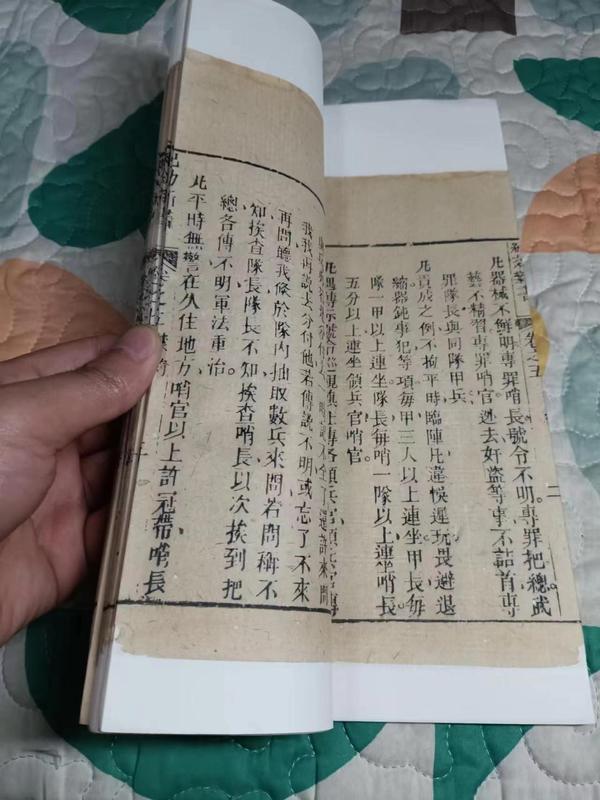 卷之五
二
凡器械不鮮明專罪哨長號令不明專罪把總武
藝不精習專罪哨官逃去奸盜等事不詰首專
罪隊長與同隊甲兵
凡責成之例不拘平時臨陣凡違悞遲玩畏避退
縮器鈍事犯等項每甲三人以上連坐甲長每
隊一甲以上連坐隊長每哨一隊以上連坐哨長
五分以上連坐領兵官哨官
凡遇傳示號令
我我再説與分付他若傳説不明或忘了不來
再問聽我倏於隊內抽取數兵來問若問稱不
知挨查隊長隊長不知挨查哨長以次挨到把
總各傳不明軍法重治
凡平時無警在久住地方哨官以上許冠帶哨長